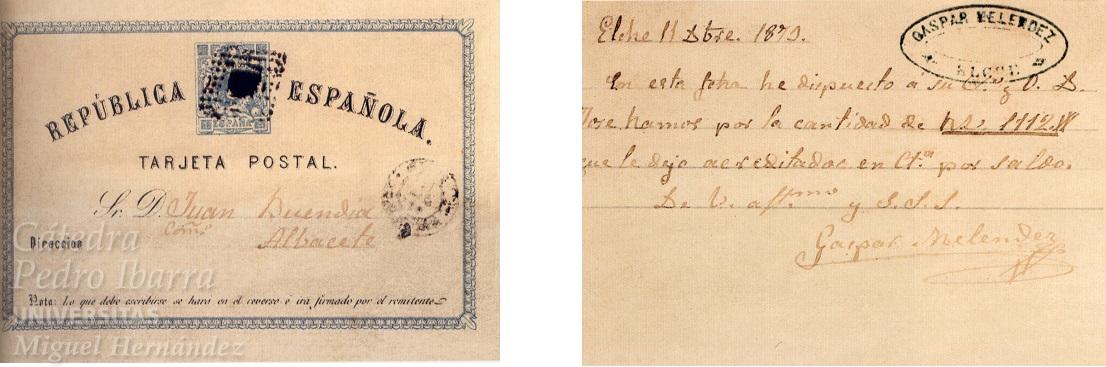 REPÚBLICA ESPAÑOLA.
ESPAÑA
TARJETA POSTAL.
Sr. D. Juan Buendia
Coms
Dirección Albacete
Nota: Lo que debe escribirse se hará en el reverso é irá firmado por el remitente
Cátedra
Pedro Ibarra
UNIVERSITAS
Miguel Hernández
Elche 11 Dbre. 1873.
GASPAR MELENDEZ
ELCHE
En esta fecha he dispuesto a su y O. D.
Jose Ramos por la cantidad de 1112
que le dejo acreditados en Cta por saldo.
De V. affmo y S.S.S.
Gaspar Melendez